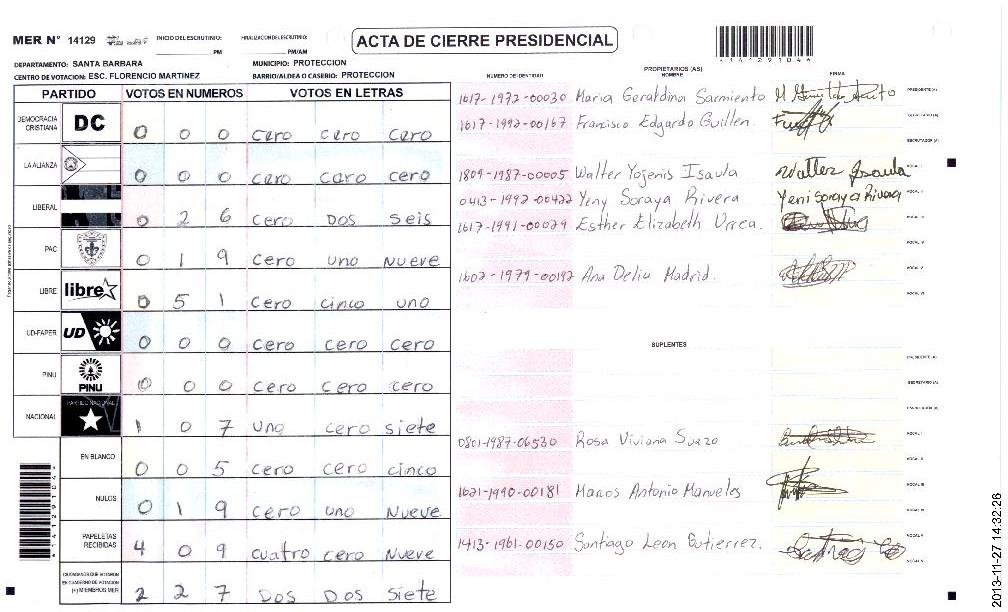 MER N° 14129
INICIO DEL ESCRUTINIO: PM
FINALIZACION DEL ESCRUTINIO: PM/AM
ACTA DE CIERRE PRESIDENCIAL
414129104
DEPARTAMENTO: SANTA BARBARA
MUNICIPIO: PROTECCION
CENTRO DE VOTACION: ESC. FLORENCIO MARTINEZ
BARRIO/ALDEA O CASERIO: PROTECCION
PARTIDO VOTOS EN NUMEROS VOTOS EN LETRAS
DEMOCRACIA CRISTIANA DC 0 0 0 cero cero cero
LA ALIANZA 0 0 0 cero caro cero
LIBERAL 0 2 6 cero Dos seis
PAC 0 1 9 cero uno Nueve
LIBRE libre 0 5 1 cero cinco uno
UD-FAPER UD 0 0 0 cero cero cero
PINU PINU 0 0 0 cero cero cero
NACIONAL PARTIDO NACIONAL 1 0 7 uno cero siete
EN BLANCO 0 0 5 cero cero cinco
NULOS 0 1 9 cero uno Nueve
PAPELETAS RECIBIDAS 4 0 9 cuatro cero Nueve
CIUDADANOS QUE VOTARON EN CUADERNO DE VOTACION (+) MIEMBROS MER 2 2 7 Dos Dos siete
PROPIETARIOS (AS)
NUMERO DE IDENTIDAD NOMBRE FIRMA
1617-1972-00030 Maria Geraldina Sarmiento PRESIDENTE (A)
1617-1992-00167 Francisco Edgardo Guillen. SECRETARIO (A)
ESCRUTADOR (A)
1804-1987-00005 Walter Yogenis Isaula Walter Ysaula VOCAL I
0413-1992-00422 Yeny Soraya Rivera Yeni Soraya Rivera VOCAL II
1617-1991-00029 Esther Elizabeth Urrea. VOCAL III
VOCAL IV
1602-1979-00192 Ana Delia Madrid. VOCAL V
VOCAL VI
SUPLENTES
PRESIDENTE (A)
SECRETARIO (A)
ESCRUTADOR (A)
0801-1987-06530 Rosa Viviana Suazo VOCAL I
VOCAL II
1621-1990-00181 Marcos Antonio Manueles VOCAL III
VOCAL IV
1413-1961-00150 Santiago Leon Gutierrez. VOCAL V
VOCAL VI
2013-11-27 14:32:26